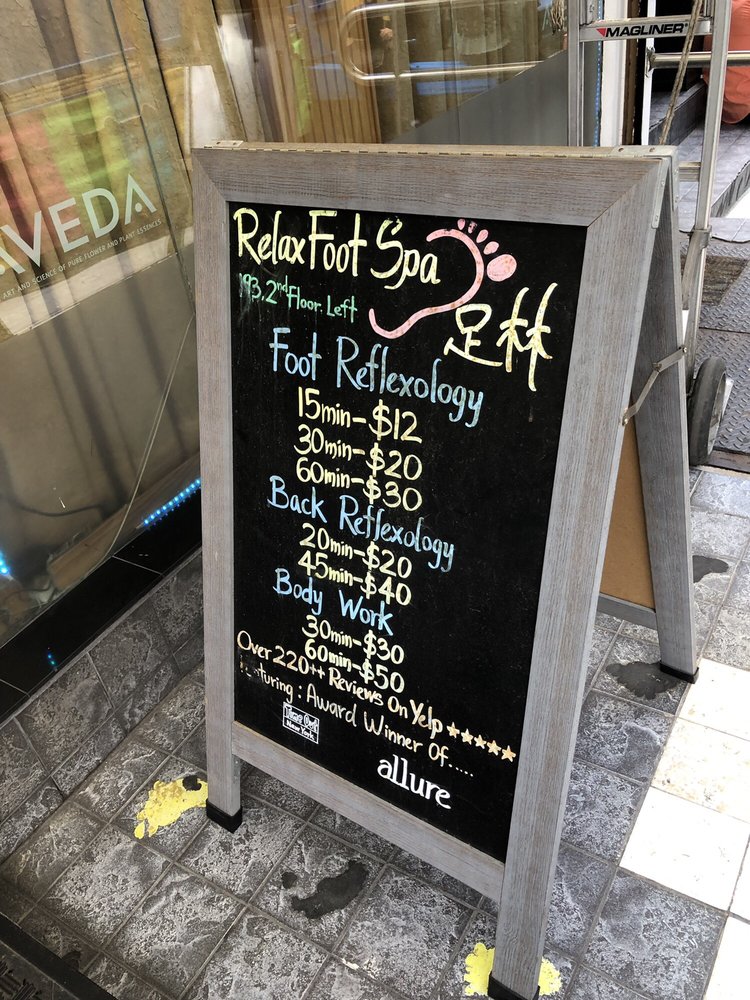 MAGLINER
AVEDA
ART AND SCIENCE OF PURE FLOWER AND PLANT ESSENCES
Relax Foot Spa
193, 2nd Floor. Left
足林
Foot Reflexology
15min-$12
30min-$20
60min-$30
Back Reflexology
20min-$20
45min-$40
Body Work
30min-$30
60min-$50
Over 220++ Reviews On Yelp ★★★★★
turing: Award Winner Of.....
Time Out
New York
allure